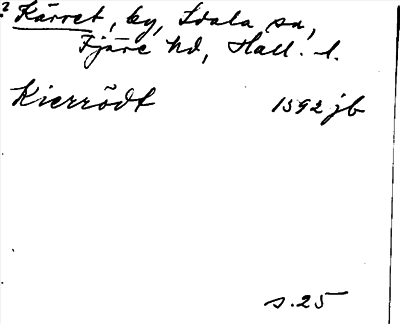 ? Kärret, by, Idala sn,
Fjäre hd, Hall. l.
Kierrödt 1592 jb
s. 25